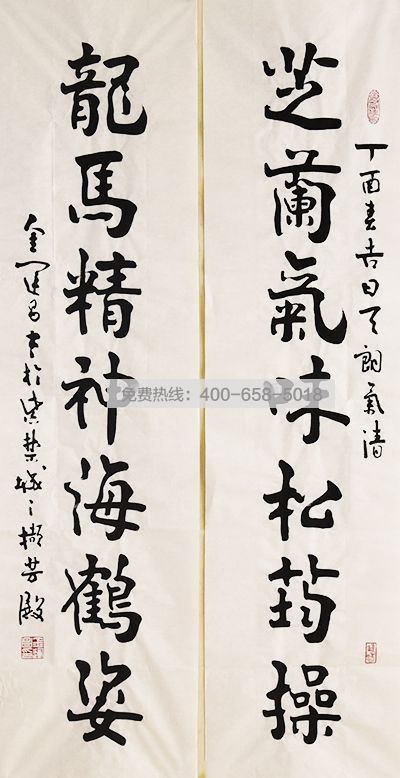 丁酉春吉日天朗氣清
芝蘭氣味松筠操
龍馬精神海鶴姿
書於紫禁城之擷芳殿
免费热线：400-658-5018